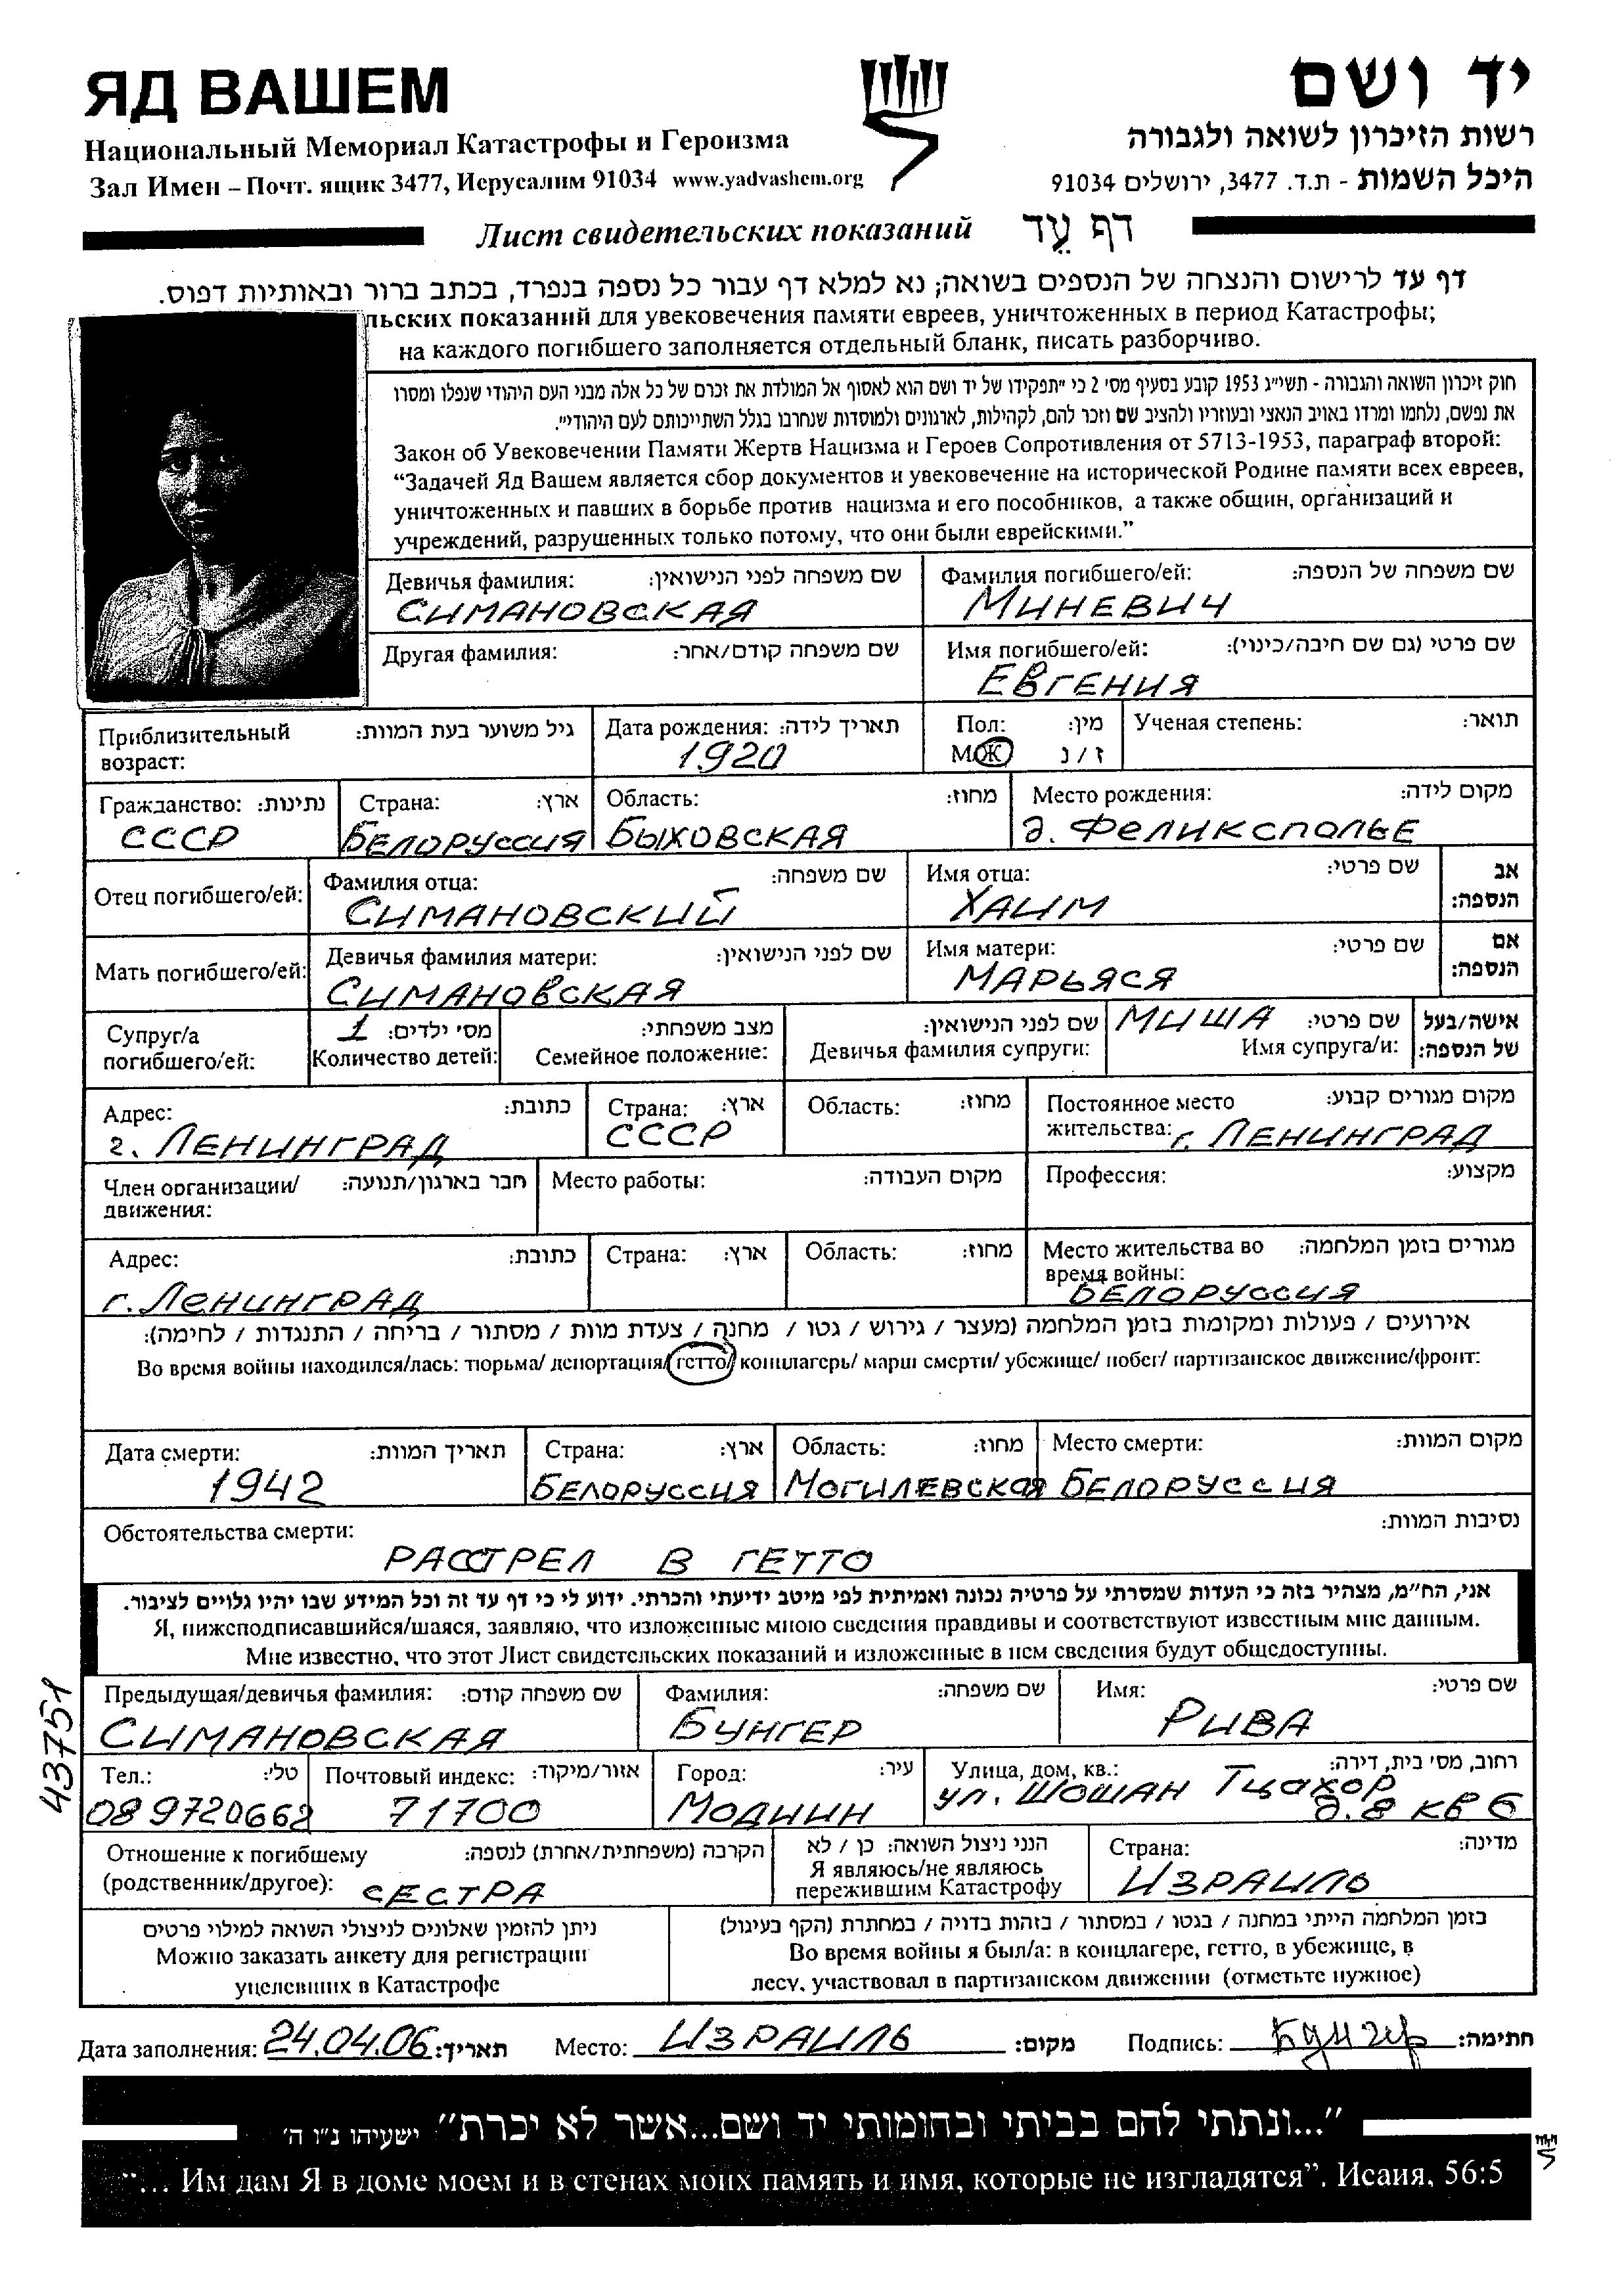 ЯД ВАШЕМ
יד ושם
Национальный Мемориал Катастрофы и Героизма
רשות הזיכרון לשואה ולגבורה
Зал Имен – Почт. ящик 3477, Иерусалим 91034 www.yadvashem.org
היכל השמות - ת.ד. 3477, ירושלים 91034
Лист свидетельских показаний דף עֵד
דף עד לרישום והנצחה של הנספים בשואה; נא למלא דף עבור כל נספה בנפרד, בכתב ברור ובאותיות דפוס.
льских показаний для увековечения памяти евреев, уничтоженных в период Катастрофы;
на каждого погибшего заполняется отдельный бланк, писать разборчиво.
חוק זיכרון השואה והגבורה - תשי״ג 1953 קובע בסעיף מס׳ 2 כי ״תפקידו של יד ושם הוא לאסוף אל המולדת את זכרם של כל אלה מבני העם היהודי שנפלו ומסרו
את נפשם, נלחמו ומרדו באויב הנאצי ובעוזריו ולהציב שם וזכר להם, לקהילות, לארגונים ולמוסדות שנחרבו בגלל השתייכותם לעם היהודי״.
Закон об Увековечении Памяти Жертв Нацизма и Героев Сопротивления от 5713-1953, параграф второй:
“Задачей Яд Вашем является сбор документов и увековечение на исторической Родине памяти всех евреев,
уничтоженных и павших в борьбе против нацизма и его пособников, а также общин, организаций и
учреждений, разрушенных только потому, что они были еврейскими.”
Девичья фамилия: שם משפחה לפני הנישואין:
СИМАНОВСКАЯ
Фамилия погибшего/ей: שם משפחה של הנספה:
МИНЕВИЧ
Другая фамилия: שם משפחה קודם/אחר:
Имя погибшего/ей: שם פרטי (גם שם חיבה/כינוי):
ЕВГЕНИЯ
Приблизительный גיל משוער בעת המוות:
возраст:
Дата рождения: תאריך לידה:
1920
Пол: מין:
М Ж ז / נ
Ученая степень: תואר:
Гражданство: נתינות:
СССР
Страна: ארץ:
БЕЛОРУССИЯ
Область: מחוז:
БЫХОВСКАЯ
Место рождения: מקום לידה:
д. ФЕЛИКСПОЛЬЕ
Отец погибшего/ей:
Фамилия отца: שם משפחה:
СИМАНОВСКИЙ
Имя отца: שם פרטי:
ХАИМ
אב
הנספה:
Мать погибшего/ей:
Девичья фамилия матери: שם לפני הנישואין:
СИМАНОВСКАЯ
Имя матери: שם פרטי:
МАРЬЯСЯ
אם
הנספה:
Супруг/а
погибшего/ей:
1 מס׳ ילדים:
Количество детей:
מצב משפחתי:
Семейное положение:
שם לפני הנישואין:
Девичья фамилия супруги:
МИША שם פרטי:
Имя супруга/и:
אישה/בעל
של הנספה:
Адрес: כתובת:
г. ЛЕНИНГРАД
Страна: ארץ:
СССР
Область: מחוז:
Постоянное место מקום מגורים קבוע:
жительства: г. ЛЕНИНГРАД
Член организации/ חבר בארגון/תנועה:
движения:
Место работы: מקום העבודה:
Профессия: מקצוע:
Адрес: כתובת:
г. ЛЕНИНГРАД
Страна: ארץ:
Область: מחוז:
Место жительства во מגורים בזמן המלחמה:
время войны:
БЕЛОРУССИЯ
אירועים / פעולות ומקומות בזמן המלחמה (מעצר / גירוש / גטו / מחנה / צעדת מוות / מסתור / בריחה / התנגדות / לחימה):
Во время войны находился/лась: тюрьма/ депортация/ гетто/ концлагерь/ марш смерти/ убежище/ побег/ партизанское движение/фронт:
Дата смерти: תאריך המוות:
1942
Страна: ארץ:
БЕЛОРУССИЯ
Область: מחוז:
МОГИЛЕВСКАЯ
Место смерти: מקום המוות:
БЕЛОРУССИЯ
Обстоятельства смерти: נסיבות המוות:
РАССТРЕЛ В ГЕТТО
אני, הח״מ, מצהיר בזה כי העדות שמסרתי על פרטיה נכונה ואמיתית לפי מיטב ידיעתי והכרתי. ידוע לי כי דף עד זה וכל המידע שבו יהיו גלויים לציבור.
Я, нижеподписавшийся/шаяся, заявляю, что изложенные мною сведения правдивы и соответствуют известным мне данным.
Мне известно, что этот Лист свидетельских показаний и изложенные в нем сведения будут общедоступны.
43751
Предыдущая/девичья фамилия: שם משפחה קודם:
СИМАНОВСКАЯ
Фамилия: שם משפחה:
БУНГЕР
Имя: שם פרטי:
РИВА
Тел.: טלי:
08 9720662
Почтовый индекс: אזור/מיקוד:
71700
Город: עיר:
МОДИИН
Улица, дом, кв.: רחוב, מס׳ בית, דירה:
ул. ШОШАН ТЦАХОР
д. 8 кв 6
Отношение к погибшему הקרבה (משפחתית/אחרת) לנספה:
(родственник/другое): СЕСТРА
הנני ניצול השואה: כן / לא
Я являюсь/не являюсь
пережившим Катастрофу
Страна: מדינה:
ИЗРАИЛЬ
ניתן להזמין שאלונים לניצולי השואה למילוי פרטים
Можно заказать анкету для регистрации
уцелевших в Катастрофе
בזמן המלחמה הייתי במחנה / בגטו / במסתור / בזהות בדויה / במחתרת (הקף בעיגול)
Во время войны я был/а: в концлагере, гетто, в убежище, в
лесу, участвовал в партизанском движении (отметьте нужное)
Дата заполнения: 24.04.06 תאריך: Место: ИЗРАИЛЬ מקום: Подпись: Бунгер חתימה:
״...ונתתי להם בביתי ובחומותי יד ושם...אשר לא יכרת״ ישעיהו נ״ו ה׳
“... Им дам Я в доме моем и в стенах моих память и имя, которые не изгладятся”. Исаия, 56:5